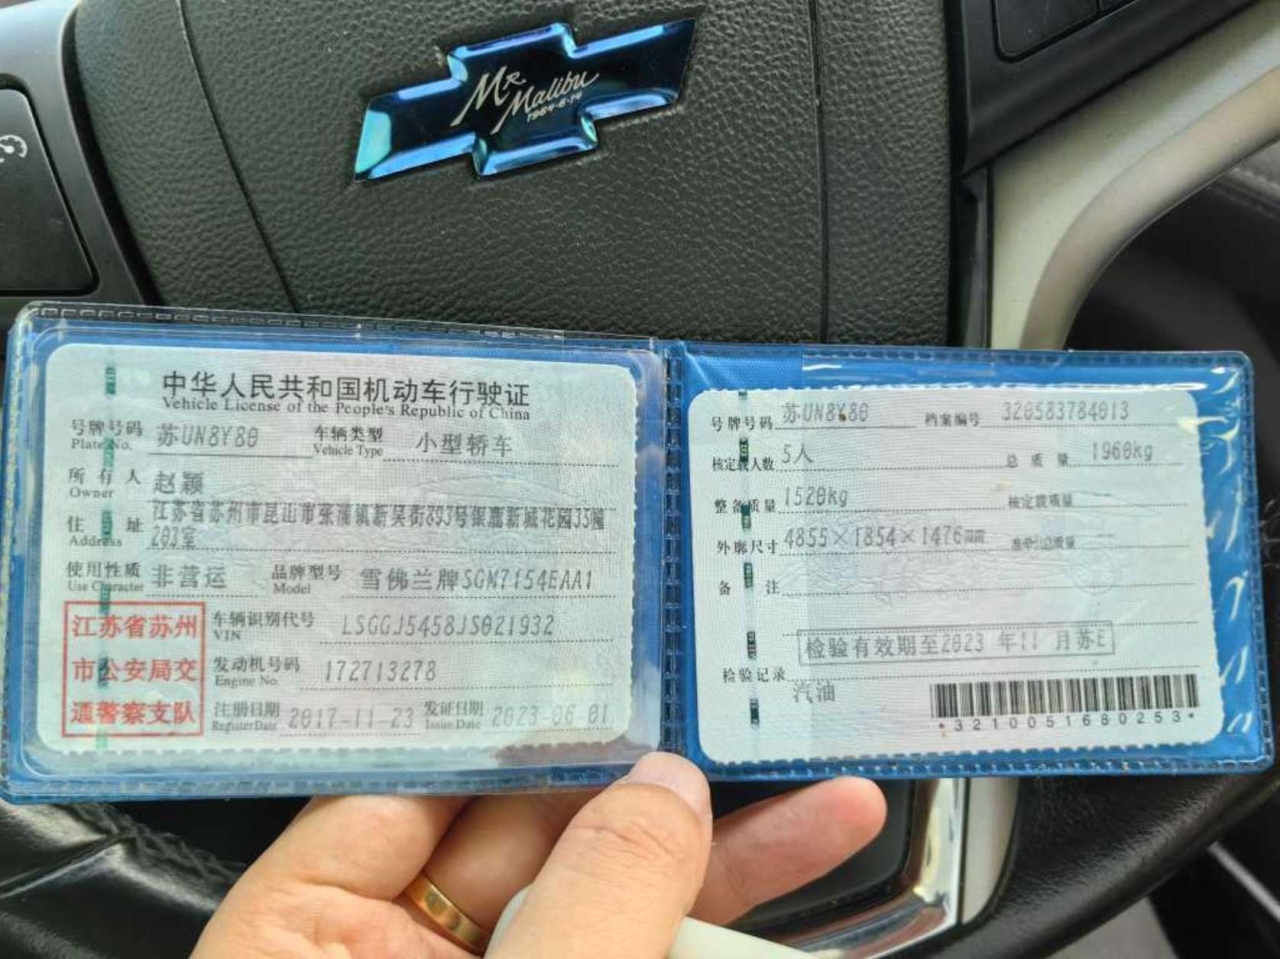 MR Malibu
1964-6-14
中华人民共和国机动车行驶证
Vehicle License of the People's Republic of China
号牌号码 苏UN8Y80 车辆类型 小型轿车
Plate No. Vehicle Type
所有人 赵颖
Owner
住址 江苏省苏州市昆山市张浦镇新吴街893号银鹿新城花园35幢
Address 203室
使用性质 非营运 品牌型号 雪佛兰牌SGM7154EAA1
Use Character Model
江苏省苏州
市公安局交
通警察支队
车辆识别代号 LSGGJ5458JS021932
VIN
发动机号码 172713278
Engine No.
注册日期 2017-11-23 发证日期 2023-06-01
Register Date Issue Date
号牌号码 苏UN8Y80 档案编号 320583784013
核定载人数 5人 总质量 1960kg
整备质量 1520kg 核定载质量
外廓尺寸 4855×1854×1476mm 准牵引总质量
备注
检验有效期至2023年11月苏E
检验记录
汽油
*3210051680253*